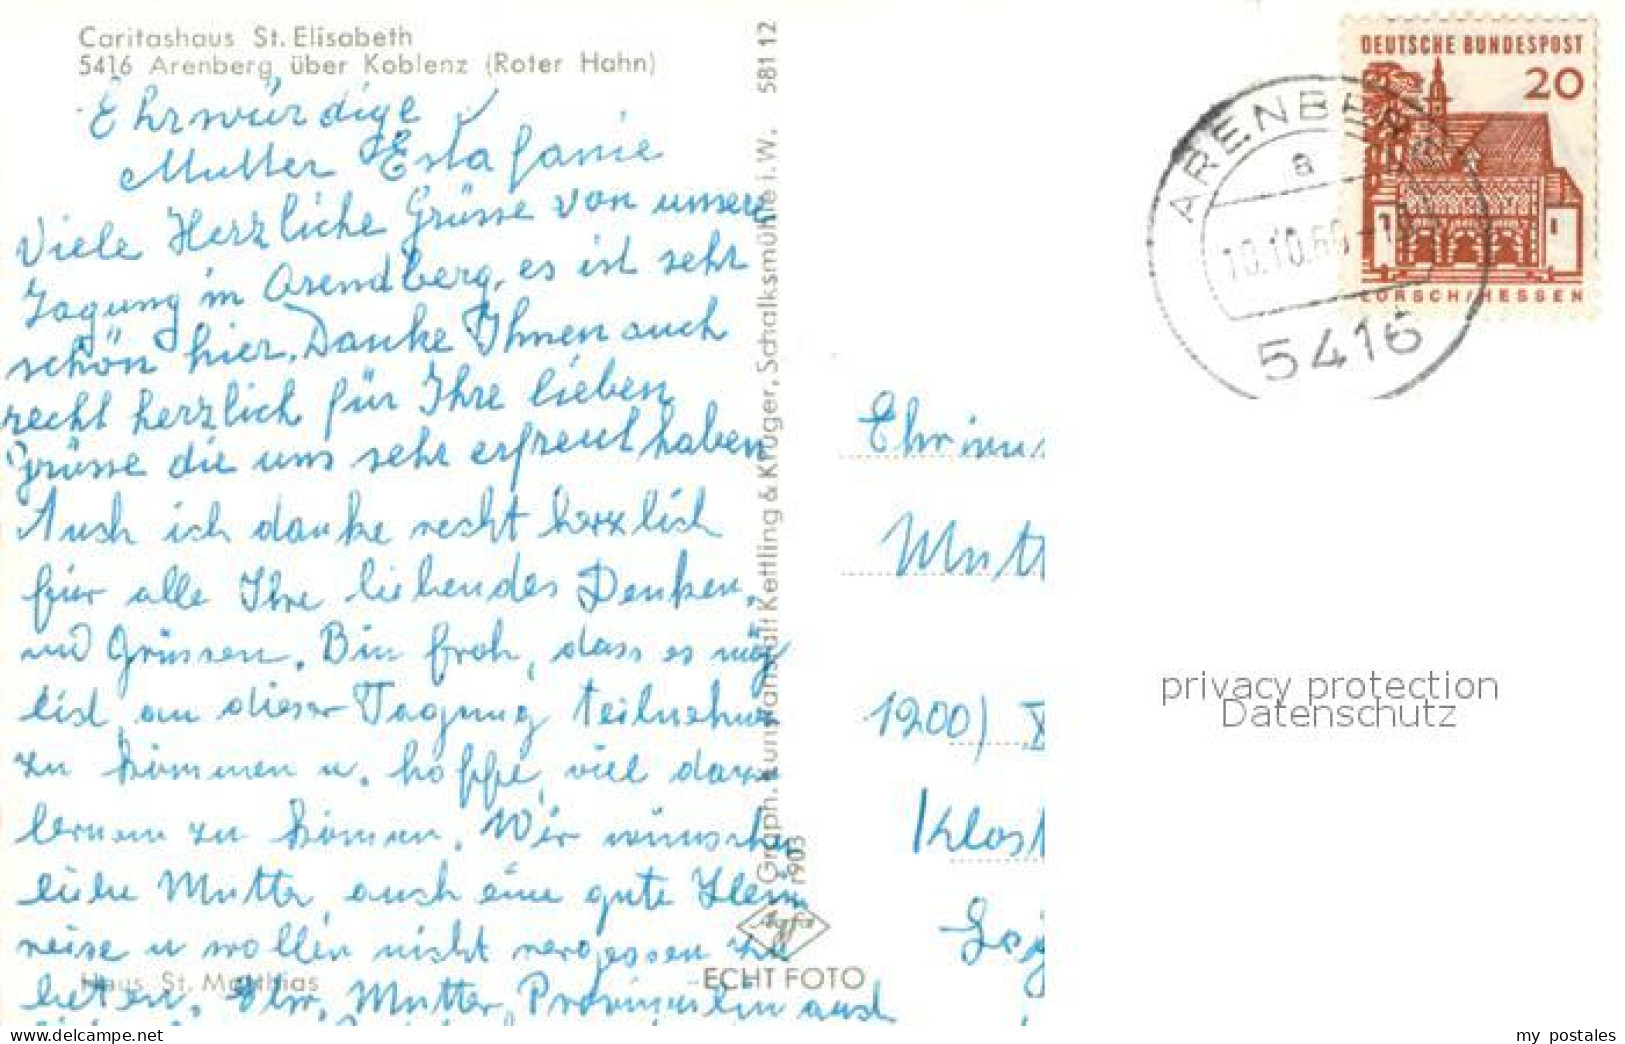 Caritashaus St. Elisabeth
5416 Arenberg über Koblenz (Roter Hahn)
Ehrwürdige
Mutter Estafanie
Viele Herzliche Grüsse von unsere
Tagung in Arendberg, es ist sehr
schön hier. Danke Ihnen auch
recht herzlich für Ihre lieben
Grüsse die uns sehr erfreut haben
Auch ich danke recht herzlich
für alle Ihre liebendes Denken,
und Grüssen. Bin froh, dass es mög
lich, an dieser Tagung teilnehmen
zu können u. hoffe, viel daraus
lernen zu können. Wir wünschen
liebe Mutter, auch eine gute Heim
reise u wollen nicht vergessen zu
beten. Ehrw. Mutter Provinzialin auch
Haus St. Matthias
581 12
Graph. Kunstanstalt Kettling & Krüger, Schalksmühle i. W.
r903
Agfa
ECHT FOTO
DEUTSCHE BUNDESPOST
20
LORSCH/HESSEN
ARENBERG
a
10.10.66
5416
Mutt
1200)
Klost
privacy protection
Datenschutz
www.delcampe.net
my_postales